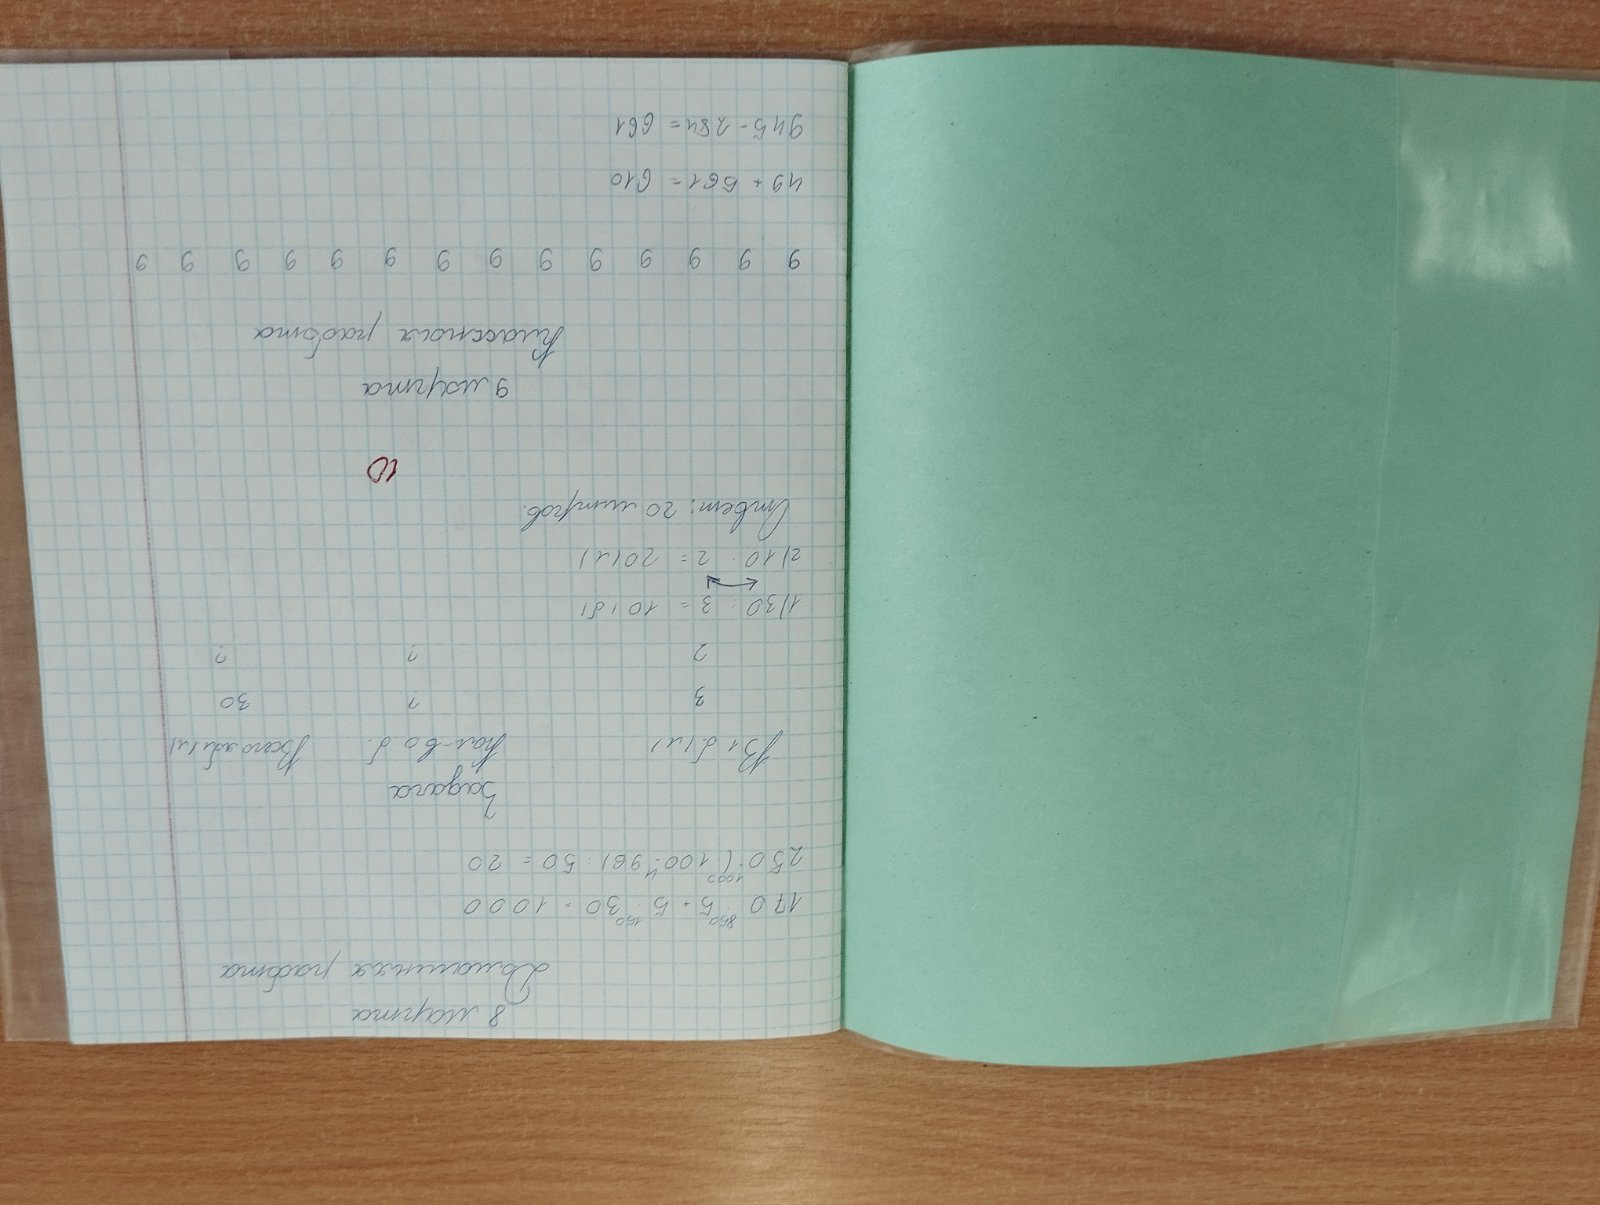 8 марта
Домашняя работа
170 · 5 + 5 · 30 = 1000
850 150
250 · (100 - 96) : 50 = 20
1000 4
Задача
В 1 б.(л) Кол-во б. Всего яб.(л)
3 ? 30
2 ? ?
1) 30 : 3 = 10(б)
2) 10 · 2 = 20(л)
Ответ: 20 литров.
10
9 марта
Классная работа
9 9 9 9 9 9 9 9 9 9 9 9 9 9
49 + 561 = 610
945 - 284 = 661